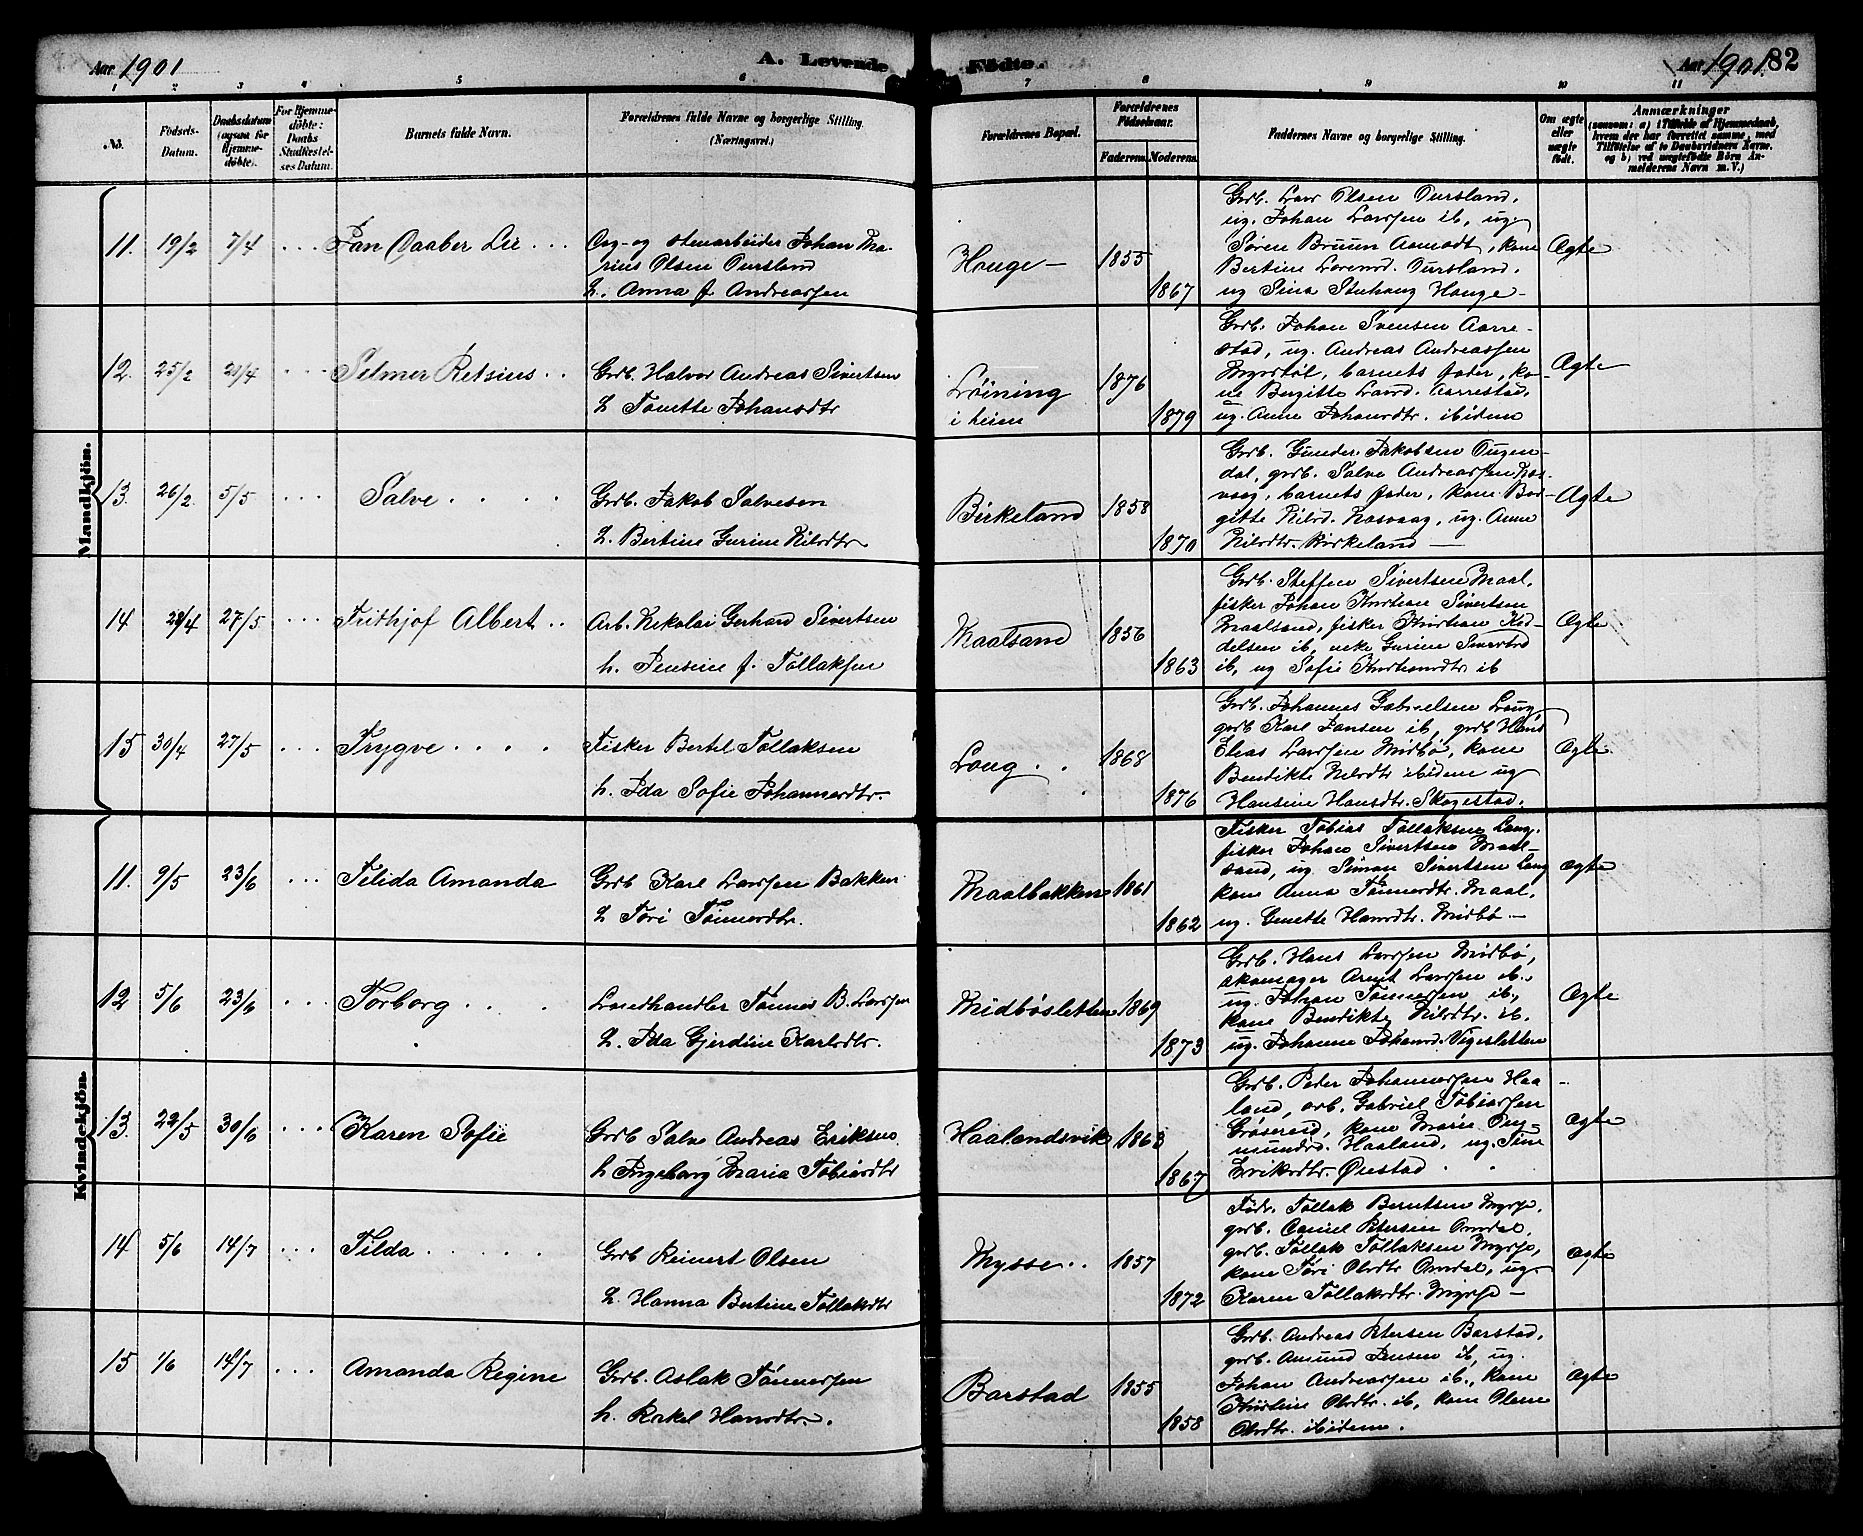 Aar 1901
A. Levende Fødte.
Aar 1901. 82
1 2 3 4 5 6 7 8 9 10 11
No.
Fødsels-
Datum.
Daabsdatum
(ogsaa for
Hjemme-
døbte).
For Hjemme-
døbte:
Daabs
Stadfæstel-
ses Datum.
Barnets fulde Navn.
Forældrenes fulde Navne og borgerlige Stilling.
(Næringsvei.)
Forældrenes Bopæl.
Forældrenes
Fødselsaar.
Faderens. Moderens.
Faddernes Navne og borgerlige Stilling.
Om ægte
eller
uægte
født.
Anmærkninger
(saasom: a) i Tilfælde af Hjemmedaab,
hvem der har forrettet samme, med
Tilføielse af to Daabsvidners Navne.
og b) ved uægtefødte Børn An-
melderens Navn m. V.)
Mandkjøn.
11. 19/2 7/4 ... Jan Daaber Lie ... 
Dag- og stenarbeider Johan Ma-
rius Olsen Dursland
H. Anna f. Andreassen
Hauge — 1855
1867
Grdb. Lars Olsen Dursland,
ug. Johan Larssen ib, ug.
Søren Bruun Aamodt, kone
Bertine Lorensd. Dursland,
ug Sina Stuhaug Hauge —
Ægte
12. 25/2 21/4 ... Selmer Retsius ..
Grdb. Halvor Andreas Sivertsen
H Tonette Johansdtr
Løining
i heien
1876
1879
Grdb. Johan Svensen Aarre-
stad, ug. Andreas Andreassen
Myrstøl, barnets fader, ko-
ne Birgitte Larsd. Aarrestad,
ug. Anne Johansdtr. ibidem
Ægte
13. 26/2 5/5 ... Salve . . . .
Grdb. Jakob Salvesen
H. Bertine Gurine Nilsdtr
Birkeland 1858
1870
Grdb. Gunder Jakobsen Ougen-
dal, grdb. Salve Andreassen Ras-
vaag, barnets fader, kone Bor-
gitte Nilsd. Rasvaag, ug. Anne
Nilsdtr. Birkeland —
Ægte
14 28/4 27/5 ... Frithjof Albert ..
Arb. Nikolai Gerhard Sivertsen
h. Jensine f. Tollaksen
Maalsand 1856
1863
Grdb. Steffen Sivertsen Maal,
fisker Johan Kristian Sivertsen
Maalsand, fisker Kristian Ked-
delsen ib, enke Gurine Sivertsd
ib, ug Sofie Kristiansdtr ib
Ægte
15 30/4 27/5 ... Trygve . . . .
Fisker Bertel Tollaksen
h. Ida Sofie Johannesdtr.
Loug .. 1868
1876
Grdb. Johannes Gabrielsen Loug
grdb Karl Jansen ib, grdb Hans
Elias Larssen Midbø, kone
Bendikte Nilsdtr ibidem ug
Hansine Hansdtr. Skogestad.
Ægte
Kvindekjøn.
11. 9/5 23/6 ... Telida Amanda
Grdb Karl Larssen Bakken
H Tori Tønnesdtr.
Maalbakken 1861
1862
Fisker Tobias Tollaksen Loug,
fisker Johan Sivertsen Maal-
sand, ug. Simon Sivertsen Loug
kone Anna Tønnesdtr. Maal,
ug. Genette Hansdtr. Midbø —
Ægte
12 5/6 23/6 ... Torborg . . .
Landhandler Tønnes B. Larssen
H. Ida Gjerdine Karlsdtr.
Midbøsletten 1869
1873
Grdb. Hans Larssen Midbø,
skomager Arent Larssen ib.,
ug. Johan Tønnessen ib,
kone Bendikte Nilsdtr. ib.
ug. Johanne Johansd. Vigesletten
Ægte
13. 22/5 30/6 ... Karen Sofie
Grdb Salve Andreas Eriksen
h Ingeborg Maria Tobiasdtr
Haalandsvik 1863
1867
Grdb. Peder Johannessen Haa-
land, arb. Gabriel Tobiassen
Grøsereid, kone Marie Ing-
mundsd. Haaland, ug. Tine
Eriksdtr. Øiestad . .
Ægte
14 5/6 14/7 ... Tilda . . . .
Grdb Reinert Olsen
H. Hanna Bertine Tollaksdtr
Mysse .. 1857
1872
Føder. Tollak Berntsen Mysse,
grdb. Daniel Petersen Omdal,
grdb. Tollak Tollaksen Mysse,
kone Tori Olsdtr Omdal, ug.
Karen Tollaksdtr. Mysse —
Ægte
15 1/6 14/7 ... Amanda Regine
Grdb. Aslak Tønnessen
h. Rakel Hansdtr.
Barstad 1855
1858
Grdb. Andreas Petersen Barstad,
grdb. Amund Jensen ib, ug.
Johan Andreassen ib., kone
Kristine Olsdtr. ib, kone Olene
Olsdtr. ibidem.
Ægte